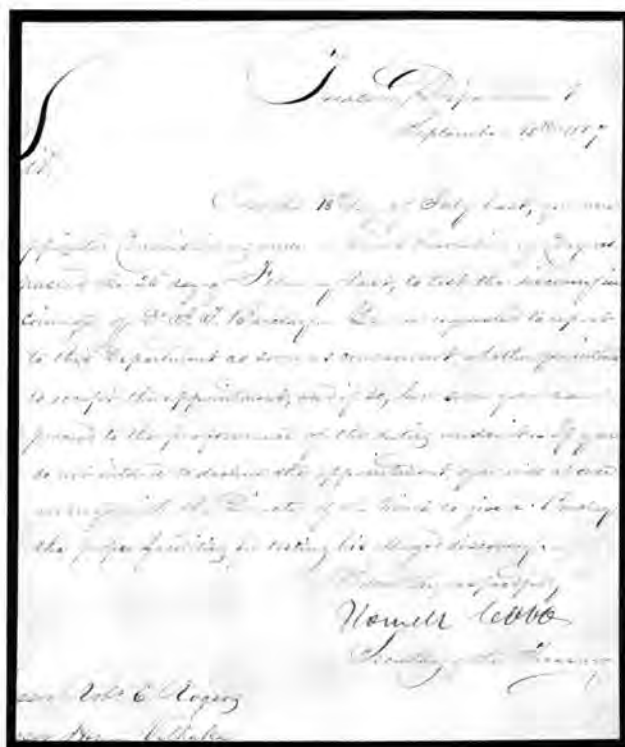 Treasury Department
September 18th 1857
Sir,
On the 18th day of July last, you were
appointed Commissioner under a Joint Resolution of Congress
passed the 26 day of February last, to test the discovery in
coinage of Dr. J. T. Barclay. You are requested to report
to this Department as soon as convenient, whether you intend
to accept the appointment, and if so, how soon you can
proceed to the performance of the duties under it. If you
do not intend to decline the appointment, you will at once
arrange with the Director of the Mint to give Dr. Barclay
the proper facilities for testing his alleged discovery.
Very respectfully
Howell Cobb
Secretary of the Treasury
Robt E Rogers